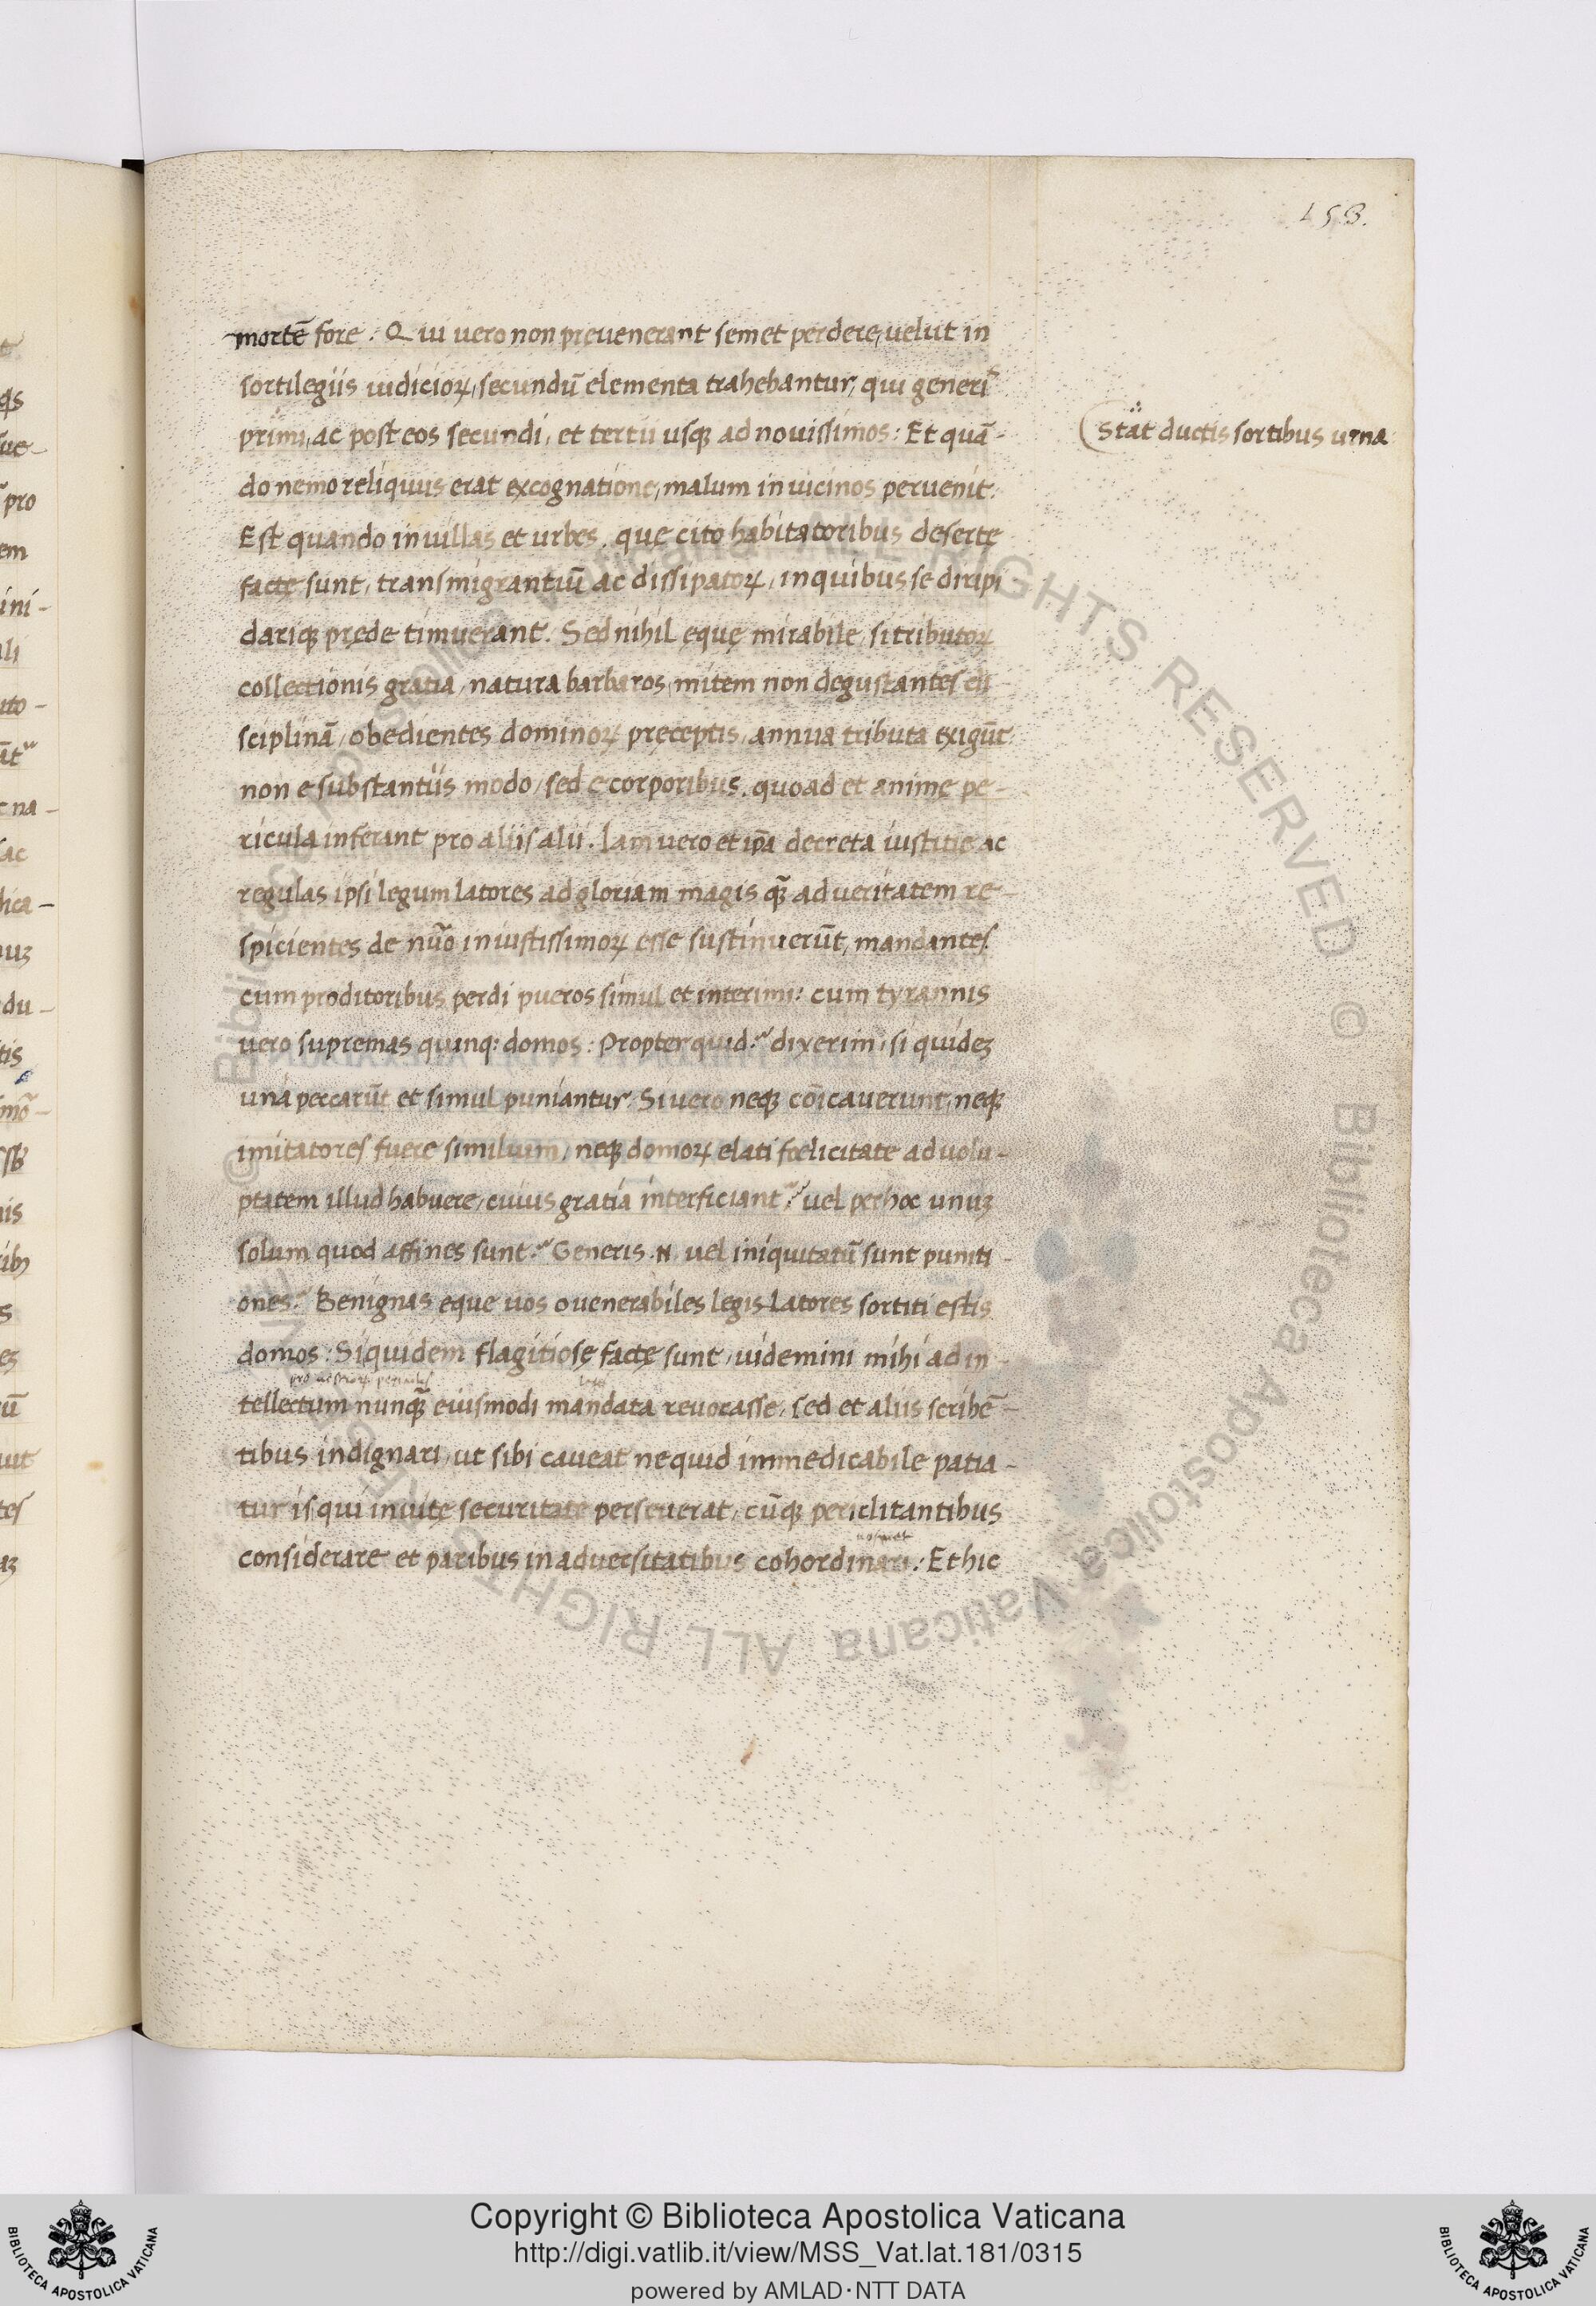 158.
mortē fore : Qui uero non preuenerant semet perdere, uelut in
sortilegiis iudicioꝝ, secundū elementa trahebantur, qui generis
primi, ac post eos secundi, et tertii usqꝫ ad nouissimos : Et quā-
Stat ductis sortibus urna
do nemo reliquus erat excognatione, malum in uicinos peruenit.
Est quando in uillas et urbes, quę cito habitatoribus deserte
factę sunt, transmigrantiū ac dissipatoꝝ, in quibus se diripi
dariqꝫ prędę timuerant. Sed nihil ęquę mirabile, si tributoꝝ
collectionis gratia, natura barbaros, mitem non degustantes di
sciplinā, obedientes dominoꝝ pręceptis, annua tributa exigūt
non e substantiis modo, sed e corporibus, quoad et animę pe-
ricula inferant pro aliis alii. Iam uero et ip̄a decreta iustitię ac
regulas ipsi legum latores ad gloriam magis qꝫ̄ ad ueritatem re-
spicientes de nūo iniustissimoꝝ esse sustinuerūt, mandantes
cum proditoribus perdi pueros simul et interimi : cum tyrannis
uero supremas quinqꝫ domos : Propter quid? dixerim, si quideꝫ
una peccarūt et simul puniantur. Si uero neqꝫ cōicauerunt, neqꝫ
imitatores fuere similium, neqꝫ domoꝝ elati fœlicitate ad uolu-
ptatem illud habuere, cuius gratia interficiant? uel per hoc unuꝫ
solum quod affines sunt? Generis .N. uel iniquitatū sunt puniti-
ones? Benignas eque uos o uenerabiles legis latores sortiti estis
domos : Siquidem flagitiosę factę sunt, uidemini mihi ad in-
tellectum nunqꝫ̄ eiusmodi mandata reuocasse, sed et aliis scribē-
tibus indignari, ut sibi caueat ne quid immedicabile patia-
tur is qui in uitę securitate perseuerat, cūqꝫ periclitantibus
considerare et paribus in aduersitatibus cohordinari : Et hic
Copyright © Biblioteca Apostolica Vaticana
http://digi.vatlib.it/view/MSS_Vat.lat.181/0315
powered by AMLAD·NTT DATA